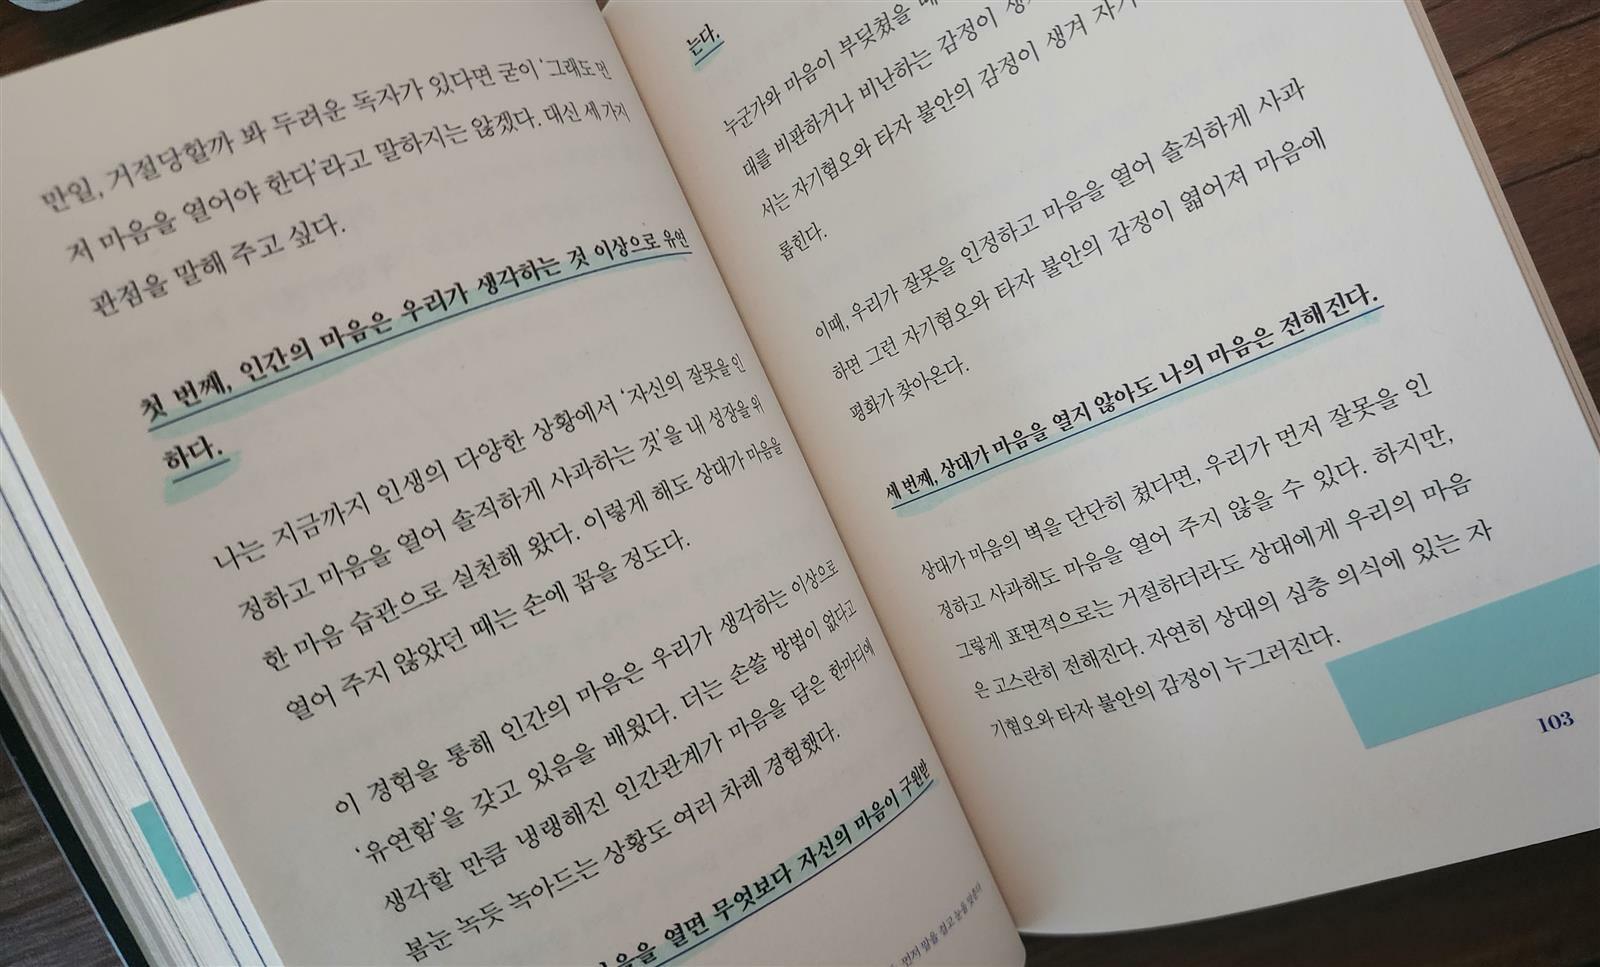 만일, 거절당할까 봐 두려운 독자가 있다면 굳이 ‘그래도 먼
저 마음을 열어야 한다’라고 말하지는 않겠다. 대신 세 가지
관점을 말해 주고 싶다.
첫 번째, 인간의 마음은 우리가 생각하는 것 이상으로 유연
하다.
나는 지금까지 인생의 다양한 상황에서 ‘자신의 잘못을 인
정하고 마음을 열어 솔직하게 사과하는 것’을 내 성장을 위
한 마음 습관으로 실천해 왔다. 이렇게 해도 상대가 마음을
열어 주지 않았던 때는 손에 꼽을 정도다.
이 경험을 통해 인간의 마음은 우리가 생각하는 이상으로
‘유연함’을 갖고 있음을 배웠다. 더는 손쓸 방법이 없다고
생각할 만큼 냉랭해진 인간관계가 마음을 담은 한마디에
봄눈 녹듯 녹아드는 상황도 여러 차례 경험했다.
음을 열면 무엇보다 자신의 마음이 구원받
먼저 말을 걸고 눈을 맞춘다
는다.
누군가와 마음이 부딪쳤을 때
대를 비판하거나 비난하는 감정이 생
서는 자기혐오와 타자 불안의 감정이 생겨 자기
롭힌다.
이때, 우리가 잘못을 인정하고 마음을 열어 솔직하게 사과
하면 그런 자기혐오와 타자 불안의 감정이 엷어져 마음에
평화가 찾아온다.
세 번째, 상대가 마음을 열지 않아도 나의 마음은 전해진다.
상대가 마음의 벽을 단단히 쳤다면, 우리가 먼저 잘못을 인
정하고 사과해도 마음을 열어 주지 않을 수 있다. 하지만,
그렇게 표면적으로는 거절하더라도 상대에게 우리의 마음
은 고스란히 전해진다. 자연히 상대의 심층 의식에 있는 자
기혐오와 타자 불안의 감정이 누그러진다.
103